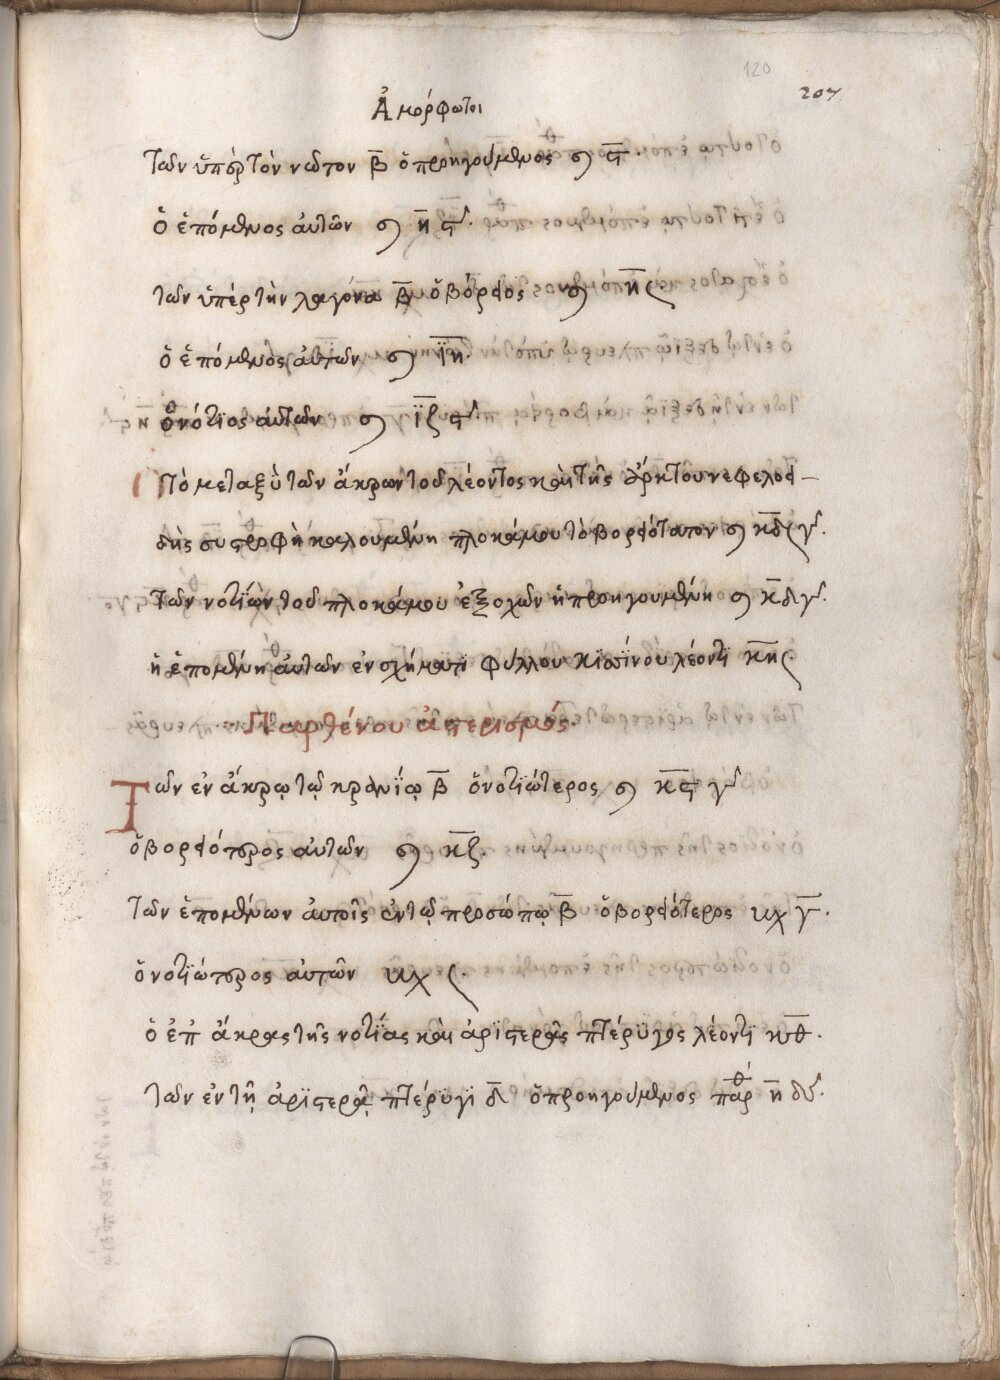 120
207
Ἀμόρφωτοι
τῶν ὑπὲρ τὸν νῶτον β̅ ὁ προηγούμενος ϛ̅.
ὁ ἑπόμενος αὐτῶν η̅ ϛʹ.
τῶν ὑπὲρ τὴν λαγόνα β̅ ὁ βόρειος η̅ ς
ὁ ἑπόμενος αὐτῶν ιη̅.
ὁ νότιος αὐτῶν ιζ ϛʹ
Τὸ μεταξὺ τῶν ἄκρων τοῦ λέοντος καὶ τῆς ἄρκτου νεφελοει–
δὴς συστροφὴ καλουμένη πλοκάμου τὸ βορειότατον κδ̅ γʹ.
Τῶν νοτίων τοῦ πλοκάμου ἐξοχῶν ἡ προηγουμένη κ̅δ γʹ.
ἡ ἑπομένη αὐτῶν ἐν σχήματι φύλλου κισσίνου λέοντι κ̅η ς
Παρθένου ἀστερισμός.
Τῶν ἐν ἄκρῳ τῷ κρανίῳ β̅ ὁ νοτιώτερος κϛ̅ γʹ
ὁ βορειότερος αὐτῶν κζ̅.
τῶν ἑπομένων αὐτοῖς ἐν τῷ προσώπῳ β̅ ὁ βορειότερος γ̅.
ὁ νοτιώτερος αὐτῶν ς.
ὁ ἐπ' ἄκρας τῆς νοτίας καὶ ἀριστερᾶς πτέρυγος λέοντι κθ̅.
τῶν ἐν τῇ ἀριστερᾷ πτέρυγι δ̅ ὁ προηγούμενος παρ^θ η̅ δʹ.